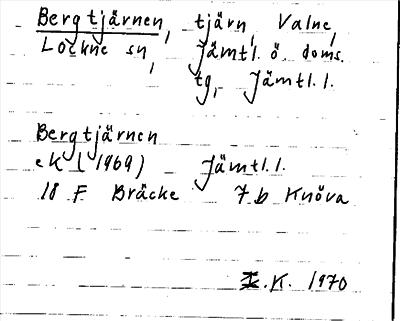 Bergtjärnen, tjärn, Valne,
Lockne sn, Jämtl. ö. doms.
tg, Jämtl. l.
Bergtjärnen
eK (1969) Jämtl. l.
18 F Bräcke 7 b Knöva
I.K. 1970